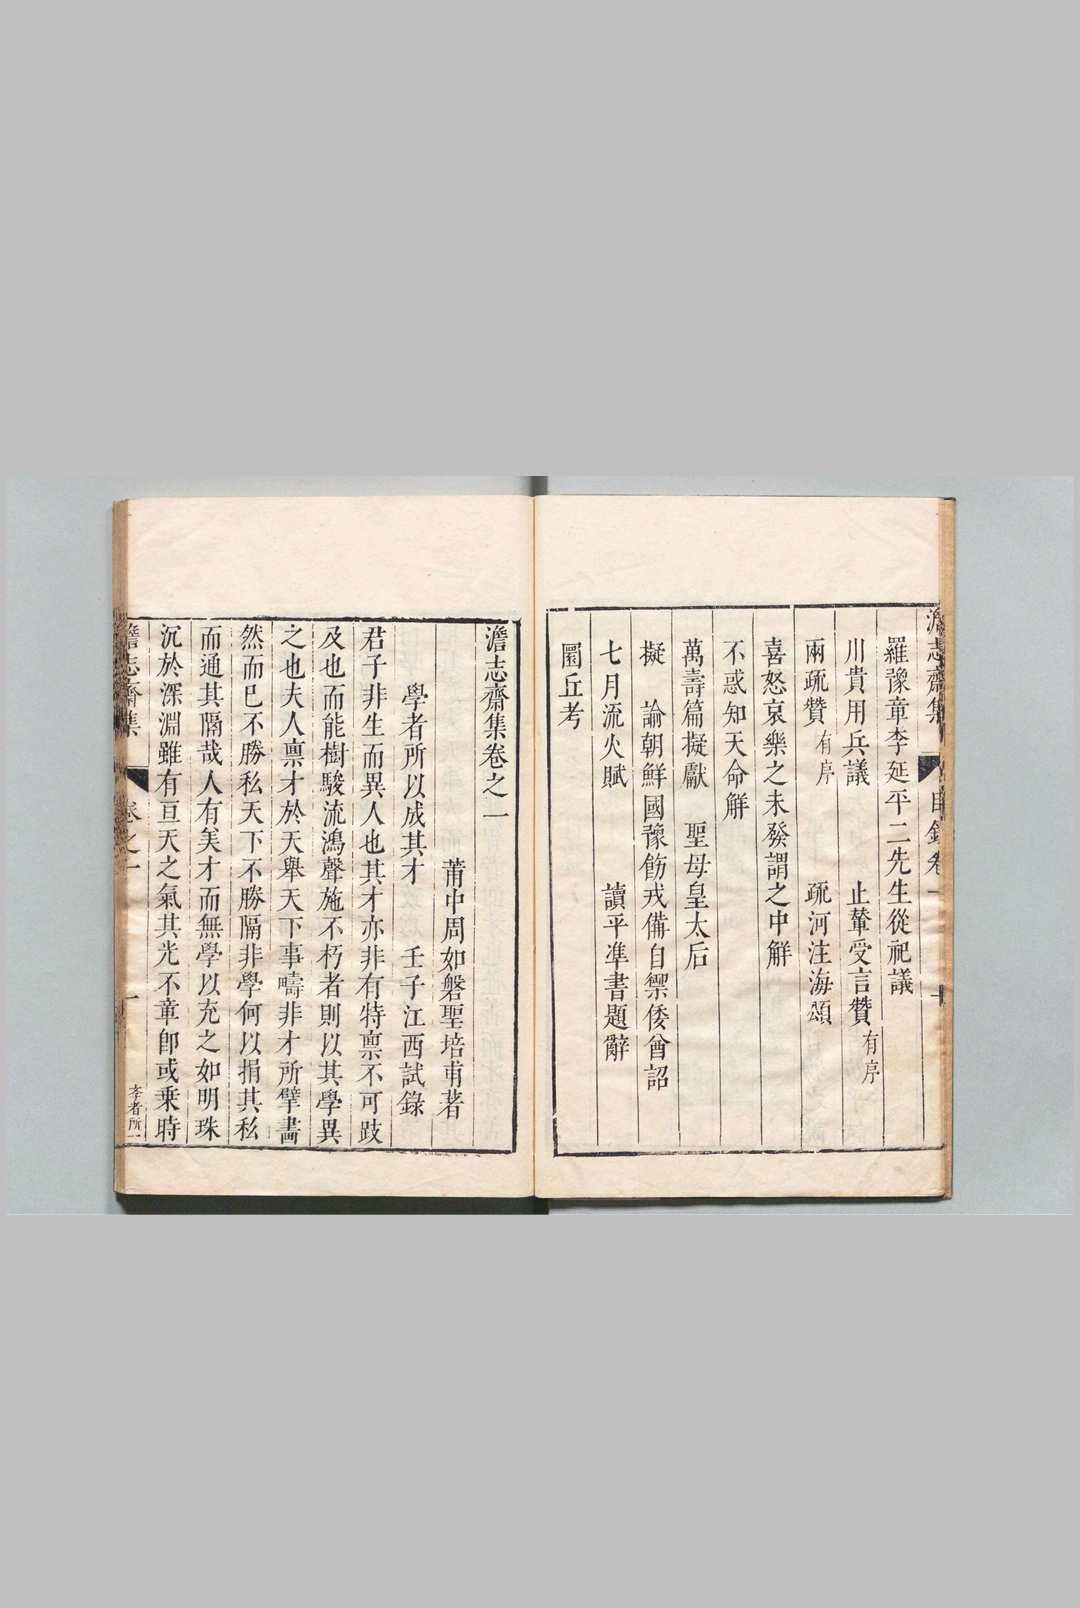 澹志齋集
目錄卷一
十
羅豫章李延平二先生從祀議
川貴用兵議 止輦受言贊有序
兩疏贊有序 疏河注海頌
喜怒哀樂之未發謂之中解
不惑知天命解
萬壽篇擬獻 聖母皇太后
擬 諭朝鮮國豫飭戎備自禦倭酋詔
七月流火賦 讀平準書題辭
圜丘考
澹志齋集卷之一
莆中周如磐聖培甫著
學者所以成其才 壬子江西試錄
君子非生而異人也其才亦非有特禀不可跂
及也而能樹駿流鴻聲施不朽者則以其學異
之也夫人禀才於天舉天下事疇非才所擘畵
然而巳不勝私天下不勝隔非學何以捐其私
而通其隔哉人有美才而無學以充之如明珠
沉於深淵雖有亘天之氣其光不章卽或乘時
澹志齋集
卷之一
一
李者所一